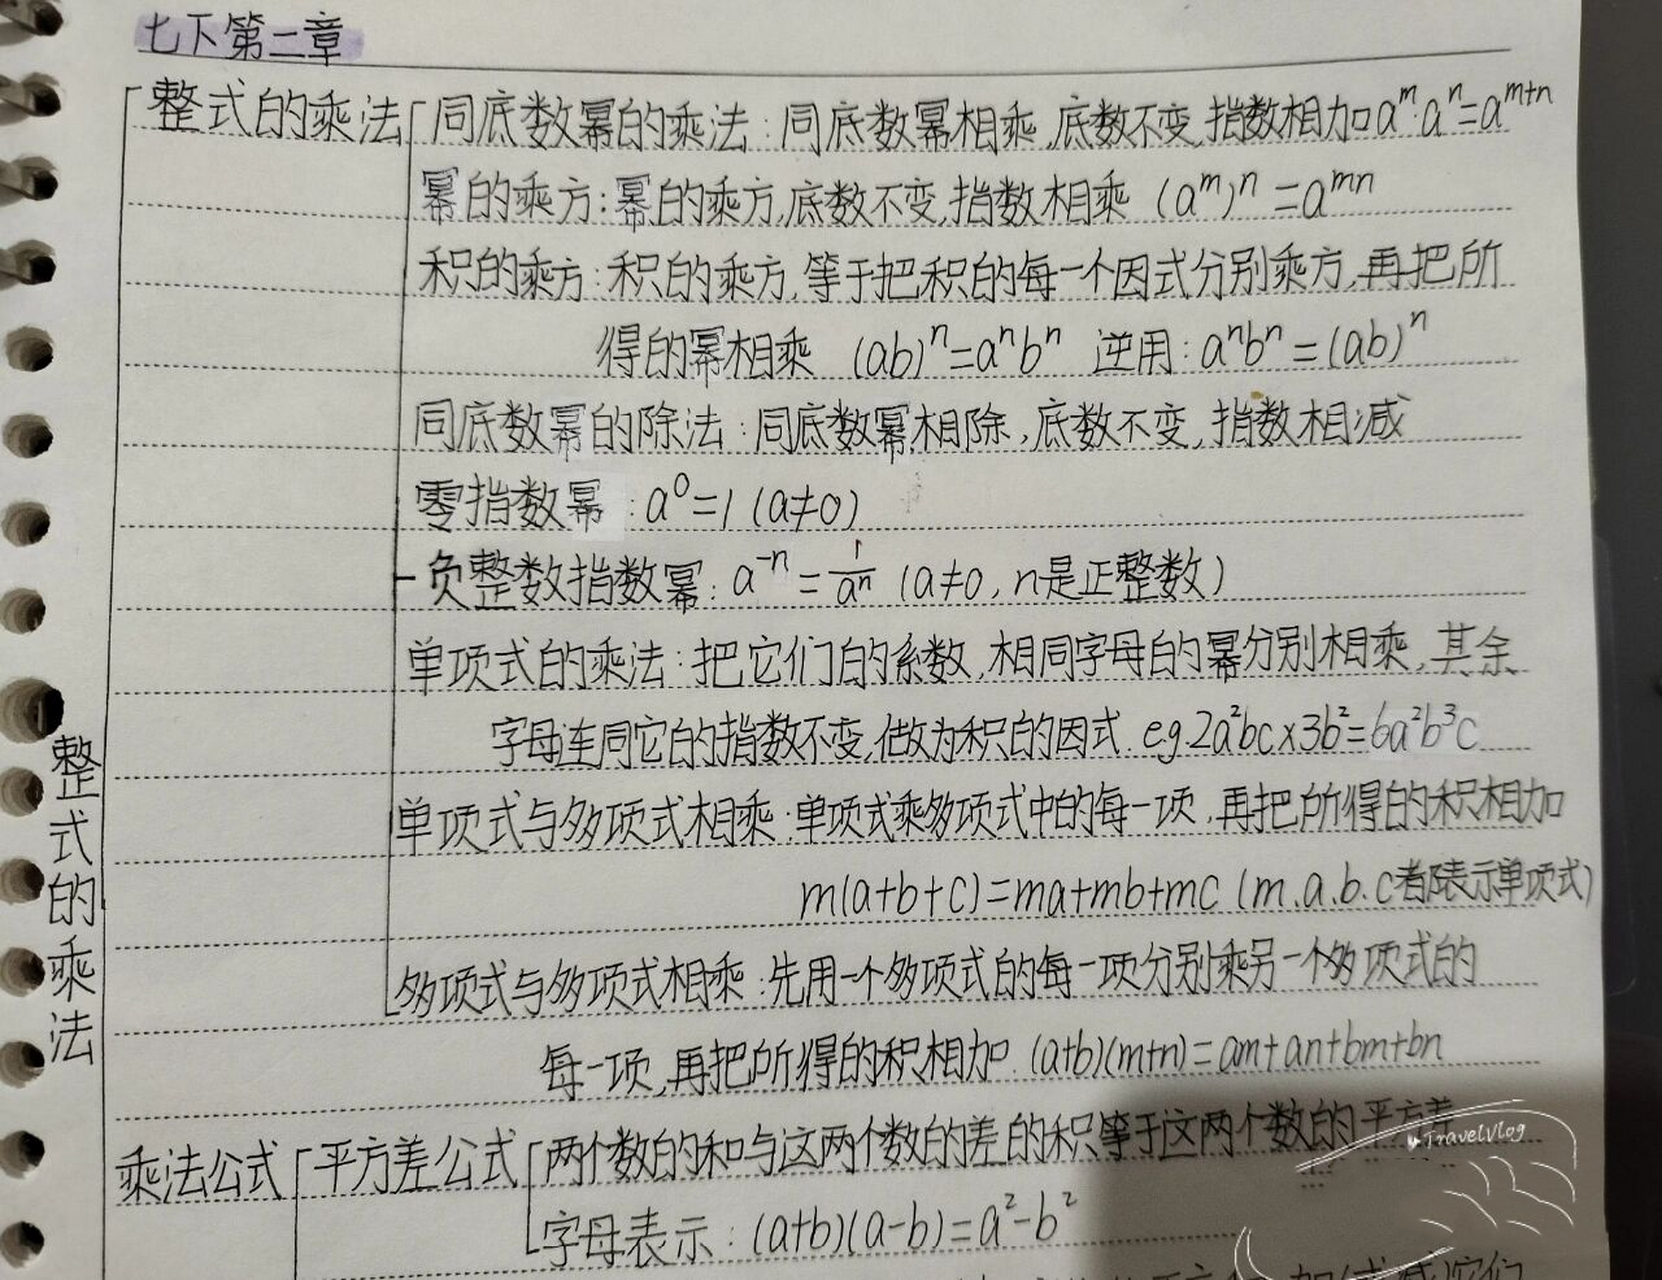 七下第二章
整式的乘法
整式的乘法
同底数幂的乘法:同底数幂相乘,底数不变,指数相加aᵐ·aⁿ=aᵐ⁺ⁿ
幂的乘方:幂的乘方,底数不变,指数相乘 (aᵐ)ⁿ=aᵐⁿ
积的乘方:积的乘方,等于把积的每一个因式分别乘方,再把所
得的幂相乘 (ab)ⁿ=aⁿbⁿ 逆用:aⁿbⁿ=(ab)ⁿ
同底数幂的除法:同底数幂相除,底数不变,指数相减
零指数幂:a⁰=1(a≠0)
负整数指数幂:a⁻ⁿ=1/aⁿ(a≠0,n是正整数)
单项式的乘法:把它们的系数,相同字母的幂分别相乘,其余
字母连同它的指数不变,做为积的因式.e.g.2a²bc×3b²=6a²b³c
单项式与多项式相乘:单项式乘多项式中的每一项,再把所得的积相加
m(a+b+c)=ma+mb+mc(m.a.b.c都表示单项式)
多项式与多项式相乘:先用一个多项式的每一项分别乘另一个多项式的
每一项,再把所得的积相加.(a+b)(m+n)=am+an+bm+bn
乘法公式
平方差公式
两个数的和与这两个数的差的积等于这两个数的平方差
TravelVlog
字母表示:(a+b)(a-b)=a²-b²